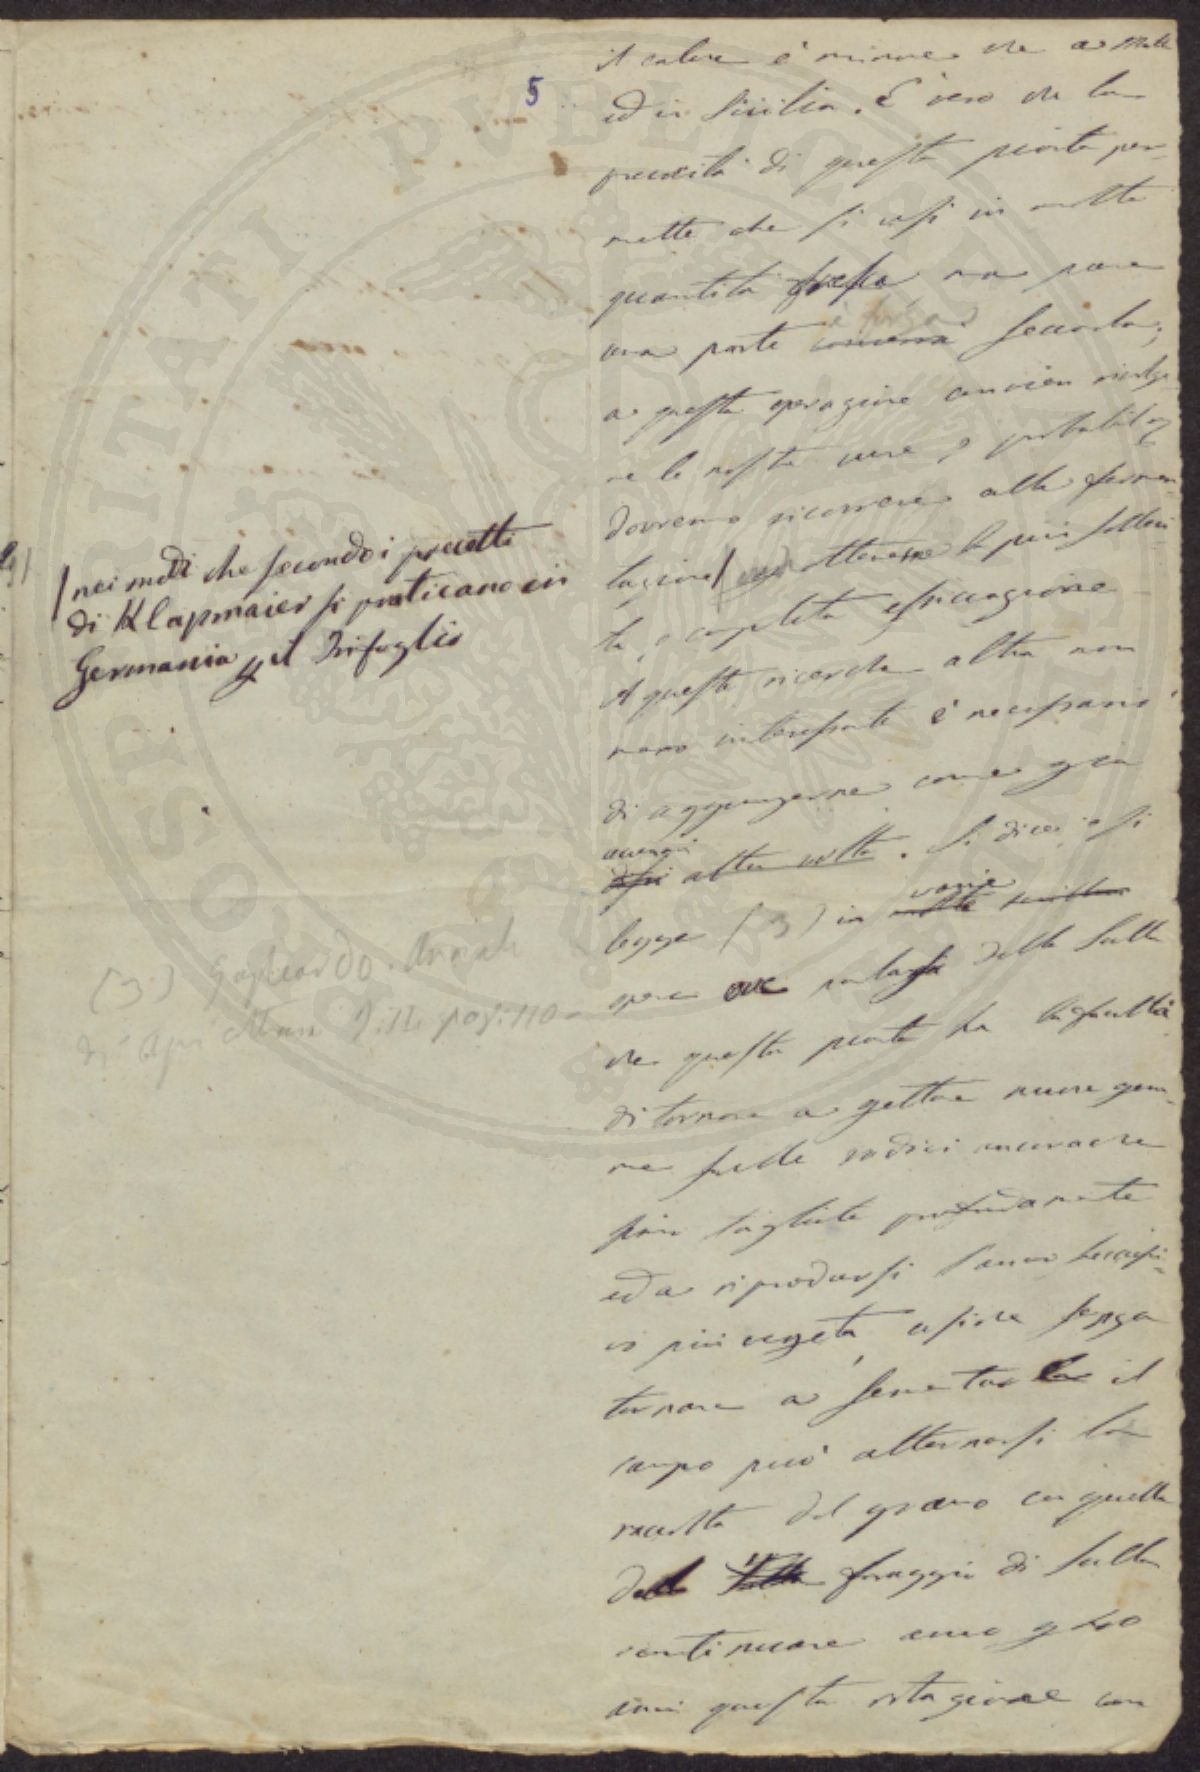 5
il calore è minore che a Malta
ed in Sicilia. È vero che la
precocità di questa pianta per-
mette che si usi in molta
quantità fresca ma pure
una parte converrà seccarla;
è forza
a questa operazione convien rivolge
re le nostre cure, e probabilm
dovremo ricorrere alla fermen
tazione/ otterrne la più solleci
ta, e completa essiccazione
A questa ricerca altra non
meno interessante è necessario
di aggiungerne come già
avenni
dissi altra volta. Si dice, e si
legge (3) in varie
molte scritture
opere ove parlasi della Sulla
che questa pianta ha la facoltà
di tornare a gettare nuove gem-
me sulle radici ancorache
sieno tagliate profondamente
ed a riprodursi l'anno successi-
vo più vegeta, e siccome senza
tornare a sementar il
campo può alternarsi la
raccolta del grano con quella
del foraggio di Sulla
continuare anco 40
anni questa rotazione con
/nei modi che secondo i precetti
di Klapmaier si praticano in
Germania pel Trifoglio
(3) Gagliardo. Annali
di Agricoltura pag. 110